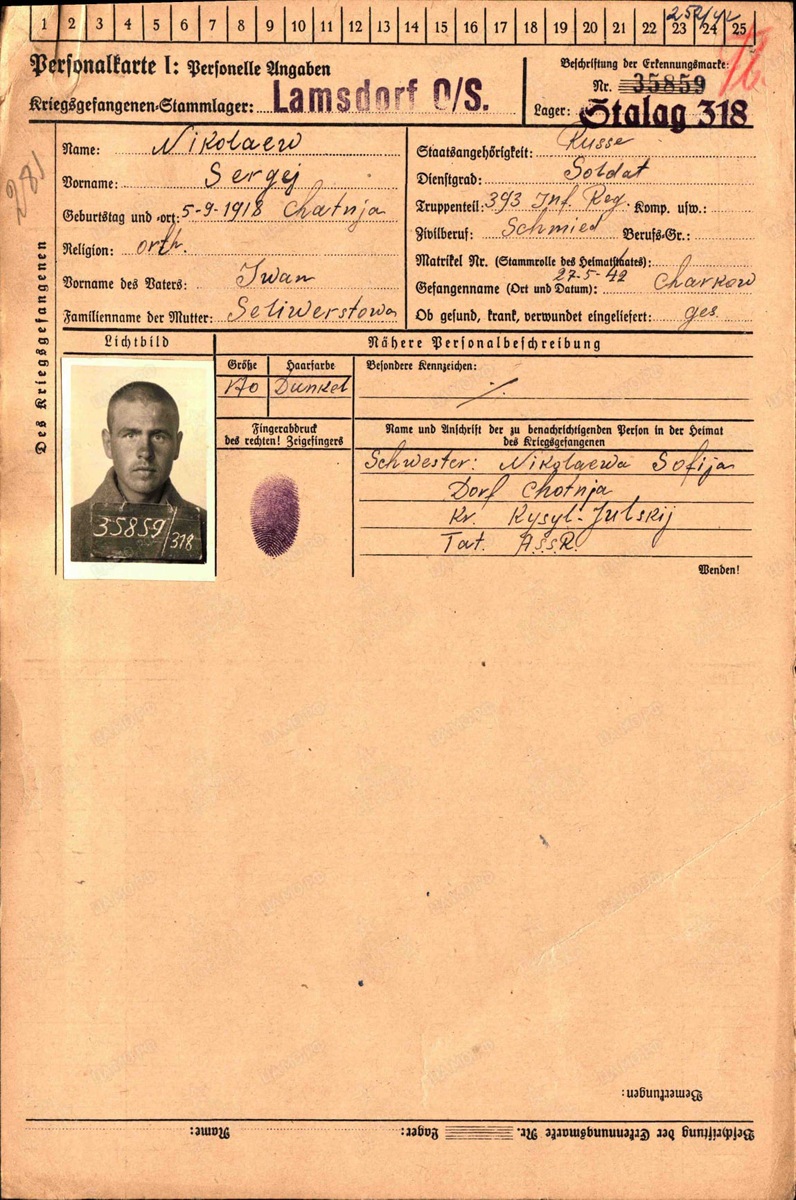 1 2 3 4 5 6 7 8 9 10 11 12 13 14 15 16 17 18 19 20 21 22 23 24 25
252/42
Personalkarte I: Personelle Angaben
Kriegsgefangenen-Stammlager: Lamsdorf O/S.
Beschriftung der Erkennungsmarke:
Nr. 35859
Lager: Stalag 318
281
Des Kriegsgefangenen
Name: Nikolaew
Vorname: Sergej
Geburtstag und -ort: 5-9-1918 Chatnja
Religion: orth.
Vorname des Vaters: Iwan
Familienname der Mutter: Seliwerstowa
Staatsangehörigkeit: Russe
Dienstgrad: Soldat
Truppenteil: 393 Inf. Reg. Komp. usw.:
Zivilberuf: Schmied Berufs-Gr.:
Matrikel Nr. (Stammrolle des Heimatstaates):
Gefangenname (Ort und Datum): 27-5-42 Charkow
Ob gesund, krank, verwundet eingeliefert: ges.
Lichtbild
Nähere Personalbeschreibung
Größe Haarfarbe Besondere Kennzeichen:
170 Dunkel
Fingerabdruck
des rechten! Zeigefingers
Name und Anschrift der zu benachrichtigenden Person in der Heimat
des Kriegsgefangenen
Schwester: Nikolaewa Sofija
Dorf Chotnja
Kr. Kysyl-Julskij
Tat. A.S.S.R.
35859/318
Wenden!
Bemerkungen:
Beschriftung der Erkennungsmarke Nr. Lager: Name: